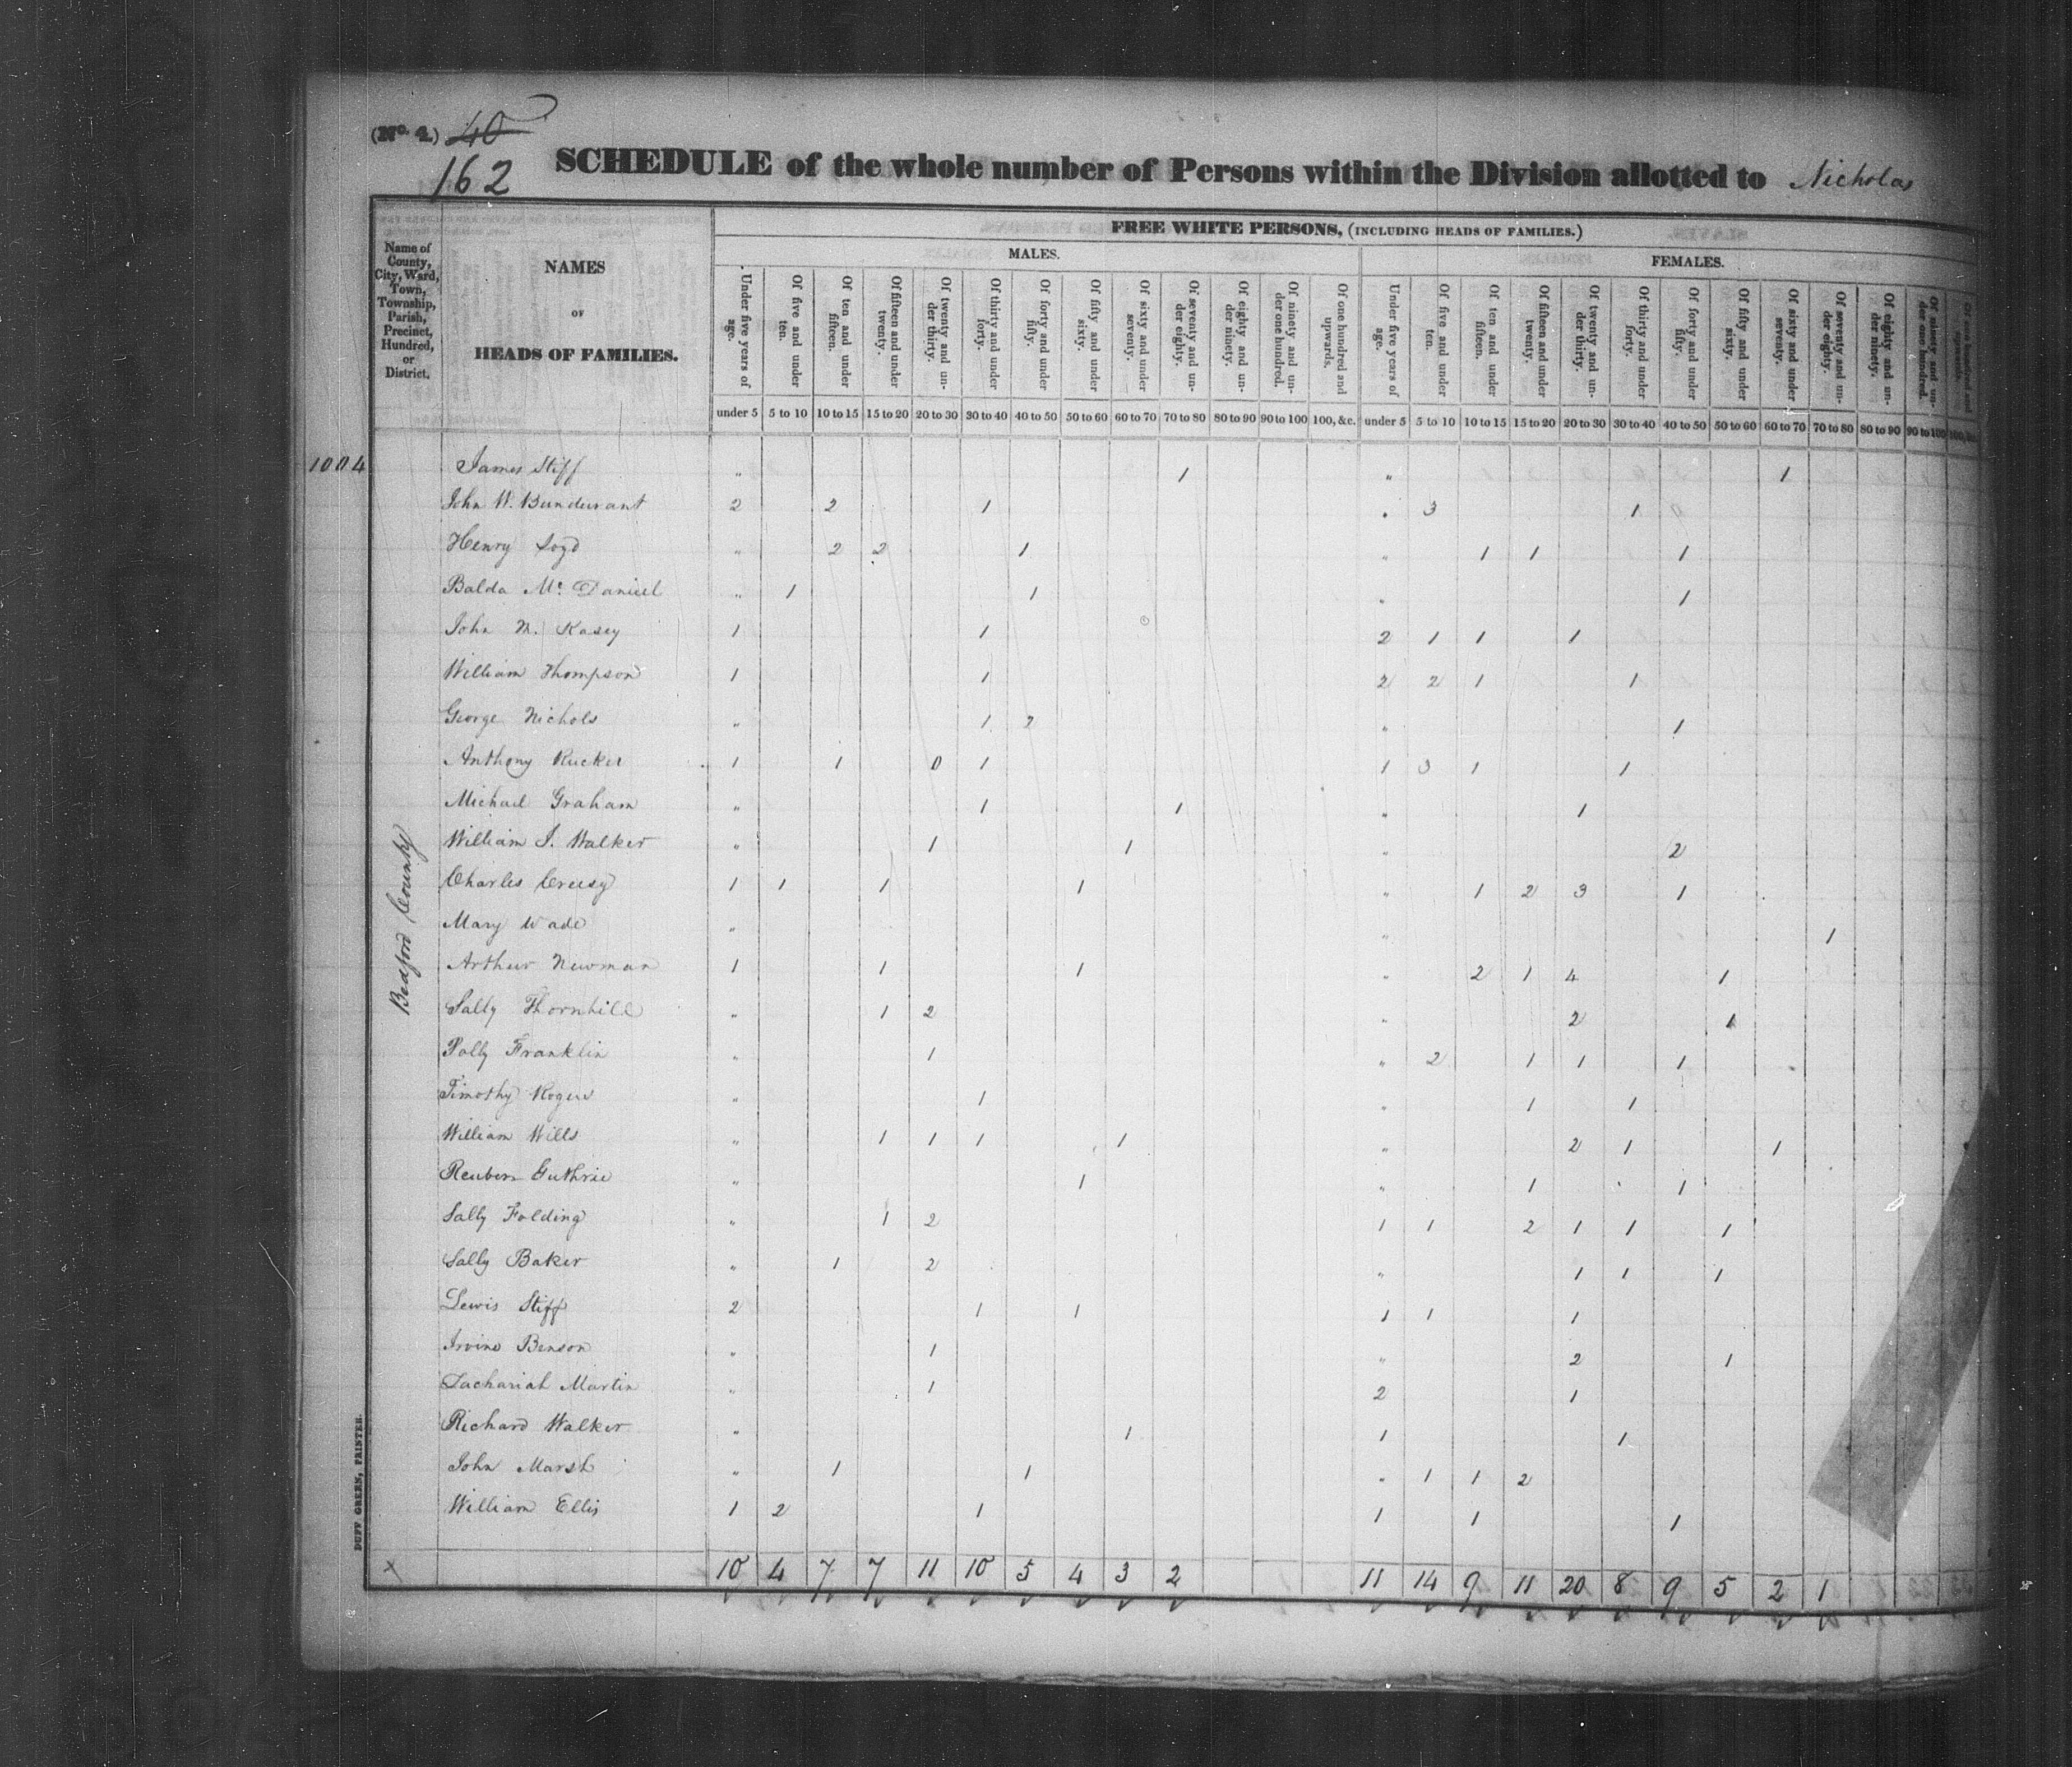 (No. 4.) 40
162 SCHEDULE of the whole number of Persons within the Division allotted to Nicholas
Name of County, City, Ward, Town, Township, Parish, Precinct, Hundred, or District.
NAMES OF HEADS OF FAMILIES.
FREE WHITE PERSONS, (INCLUDING HEADS OF FAMILIES.)
MALES. FEMALES.
Under five years of age. Of five and under ten. Of ten and under fifteen. Of fifteen and under twenty. Of twenty and under thirty. Of thirty and under forty. Of forty and under fifty. Of fifty and under sixty. Of sixty and under seventy. Of seventy and under eighty. Of eighty and under ninety. Of ninety and under one hundred. Of one hundred and upwards. Under five years of age. Of five and under ten. Of ten and under fifteen. Of fifteen and under twenty. Of twenty and under thirty. Of thirty and under forty. Of forty and under fifty. Of fifty and under sixty. Of sixty and under seventy. Of seventy and under eighty. Of eighty and under ninety. Of ninety and under one hundred.
under 5 5 to 10 10 to 15 15 to 20 20 to 30 30 to 40 40 to 50 50 to 60 60 to 70 70 to 80 80 to 90 90 to 100 100, &c. under 5 5 to 10 10 to 15 15 to 20 20 to 30 30 to 40 40 to 50 50 to 60 60 to 70 70 to 80 80 to 90 90 to 100
1004 James Stiff " 1 " 1
John W. Bundurant 2 2 1 . 3 1
Henry " 2 2 1 " 1 1 1
Balda Mc Daniel " 1 1 " 1
John N. Kasey 1 1 2 1 1 1
William Thompson 1 1 2 2 1 1
George Nichols " 1 2 " 1
Anthony Rucker 1 1 0 1 1 3 1 1
Michael Graham " 1 1 " 1
William J. Walker " 1 1 " 2
Charles Creesy 1 1 1 1 " 1 2 3 1
Mary Wade " " 1
Arthur Newman 1 1 1 " 2 1 4 1
Sally Thornhill " 1 2 " 2 1
Polly Franklin " 1 " 2 1 1 1
Timothy Rogers " 1 " 1 1
William Wills " 1 1 1 1 " 2 1 1
Reuben Guthrie " 1 " 1 1
Sally Folding " 1 2 1 1 2 1 1 1
Sally Baker " 1 2 " 1 1 1
Lewis Stiff 2 1 1 1 1 1
Irvine Benson " 1 " 2 1
Zachariah Martin " 1 2 1
Richard Walker " 1 1 1
John Marsh " 1 1 " 1 1 2
William Ellis 1 2 1 1 1 1
Bedford County
10 4 7 7 11 10 5 4 3 2 11 14 9 11 20 8 9 5 2 1
DUFF GREEN, PRINTER.